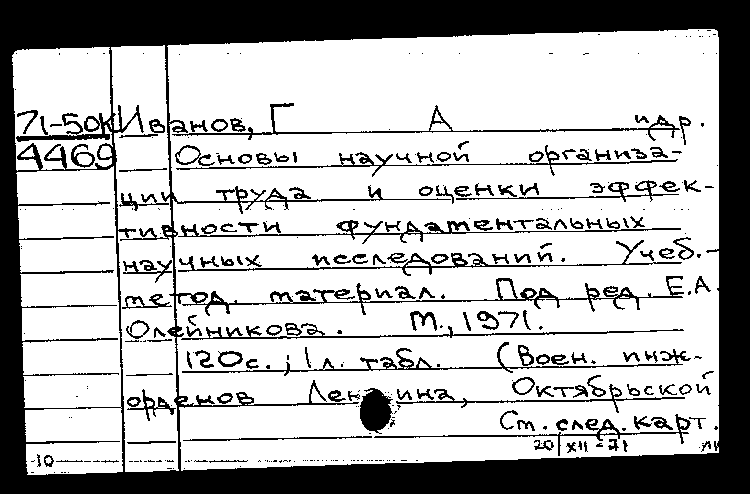 71-50К Иванов, Г А и др.
4469 Основы научной организа-
ции труда и оценки эффек-
тивности фундаментальных
научных исследований. Учеб.-
метод. материал. Под ред. Е.А.
Олейникова. М., 1971.
120с.; 1 л. табл. (Воен. инж.
орденов Ленина, Октябрьской
См. след. карт.
20/XII-71
10